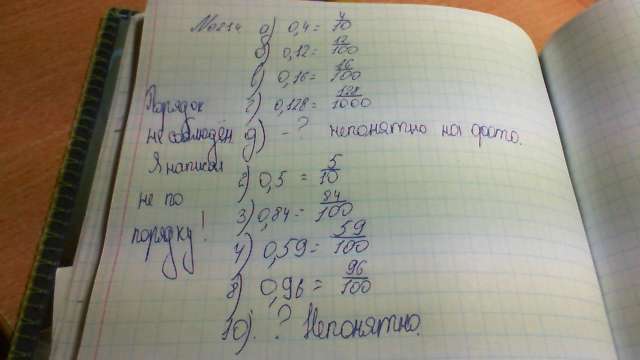 № 214 а) 0,4 = 4/10
б) 0,12 = 12/100
в) 0,16 = 16/100
Порядок г) 0,128 = 128/1000
не соблюдён д) - ? непонятно на фото.
Я написал 2) 0,5 = 5/10
не по 3) 0,84 = 84/100
порядку! 4) 0,59 = 59/100
8) 0,96 = 96/100
10). ? Непонятно.